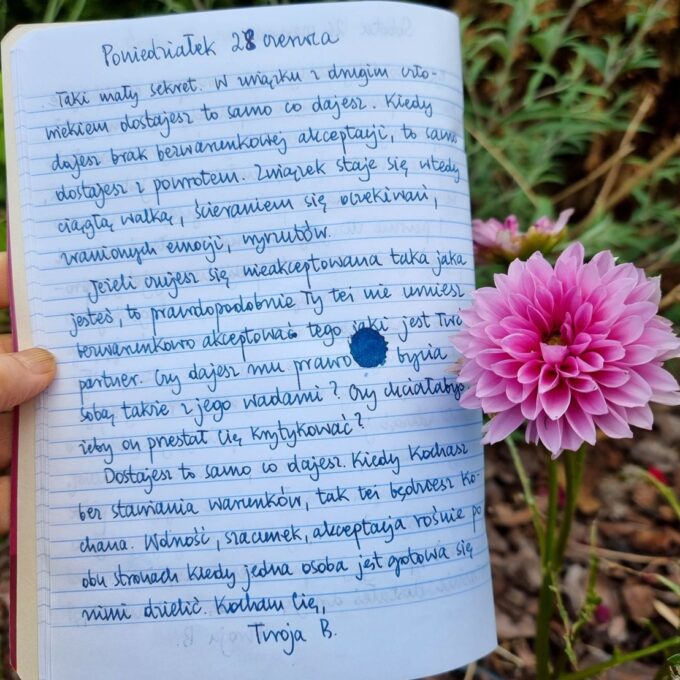 Poniedziałek 28 czerwca
Taki mały sekret. W związku z drugim czło-
wiekiem dostajesz to samo co dajesz. Kiedy
dajesz brak bezwarunkowej akceptacji, to samo
dostajesz z powrotem. Związek staje się wtedy
ciągłą walką, ścieraniem się oczekiwań,
wzanionych emocji, wyrzutów.
Jeżeli czujesz się nieakceptowana taka jaka
jesteś, to prawdopodobnie Ty też nie umiesz
bezwarunkowo akceptować tego jaki jest Twój
partner. Czy dajesz mu prawo bycia
sobą, także z jego wadami? Czy chciałabyś
żeby on przestał Cię krytykować?
Dostajesz to samo co dajesz. Kiedy kochasz
bez stawiania warunków, tak też będziesz ko-
chana. Wolność, szacunek, akceptacja rośnie po
obu stronach kiedy jedna osoba jest gotowa się
nimi dzielić. Kocham Cię,
Twoja B.